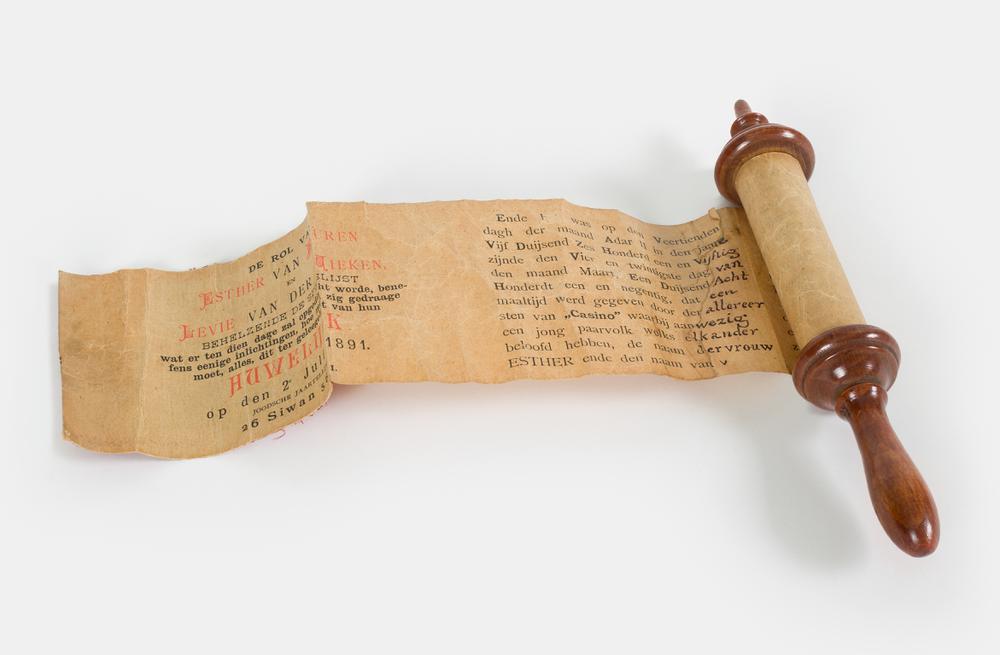 DE ROL VA
ESTHER VAN UREN
EN
LEVIE VAN DER MIEKEN,
BEHELZENDE DE SLIJST
wat er ten dien dage zal opge at worde, bene-
fens eenige inlichtingen, hoe zig gedraage
moet, alles, dit ter geleeg t van hun
HUWELIJK
op den 2e Jul 1891.
JOODSCHE JAARTE
26 Siwan
Ende h was op den Veertienden
dagh der maand Adar II in den jaare
Vijf Duijsend Zes Honderd een en Vijftig
zijnde den Vier en twintigste dag van
den maand Maart, Een Duijsend Acht
Honderdt een en negentig, dat een
maaltijd werd gegeven door der allereer
sten van „Casino” waarbij aanwezig
een jong paarvolk welks elkander
beloofd hebben, de naam der vrouw
ESTHER ende den naam van v